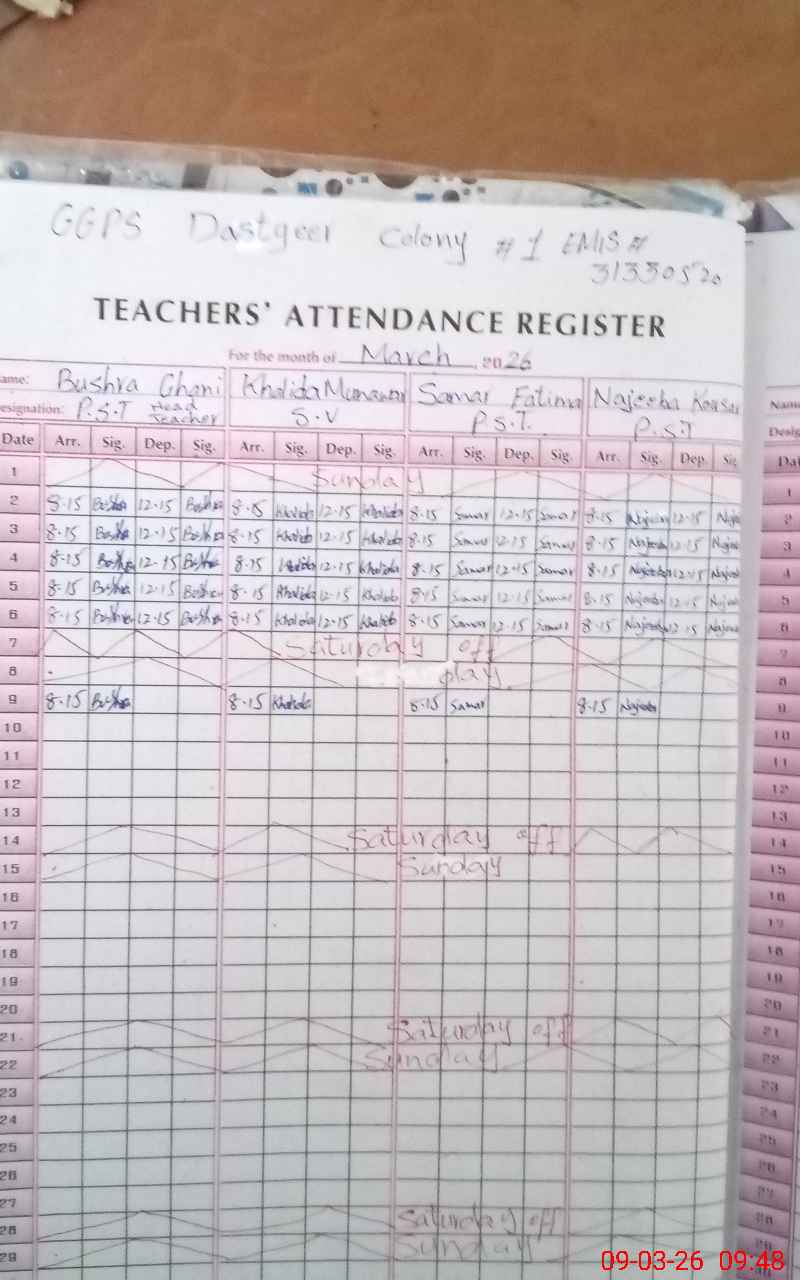 GGPS Dastgeer Colony # 1 EMIS #
31330520
TEACHERS' ATTENDANCE REGISTER
For the month of March, 2026
ame: Bushra Ghani Khalida Munawar Samar Fatima Najeeba Kousar Name
esignation: P.S.T Head Teacher S.V P.S.T. P.S.T Desig
Date Arr. Sig. Dep. Sig. Arr. Sig. Dep. Sig. Arr. Sig. Dep. Sig Arr. Sig. Dep. Sig Dat
1 Sunday 1
2 8-15 Bushra 12-15 Bushra 8-15 Khalida 12-15 Khalida 8-15 Samar 12-15 Samar 8-15 Najeeba 12-15 Naje 2
3 8-15 Bushra 12-15 Bushra 8-15 Khalida 12-15 Khalida 8-15 Samar 12-15 Samar 8-15 Najeeba 12-15 Najee 3
4 8-15 Bushra 12-15 Bushra 8-15 Khalida 12-15 Khalida 8-15 Samar 12-15 Samar 8-15 Najeeba 12-15 Najee 4
5 8-15 Bushra 12-15 Bushra 8-15 Khalida 12-15 Khalida 8-15 Samar 12-15 Samar 8-15 Najeeba 12-15 Najee 5
6 8-15 Bushra 12-15 Bushra 8-15 Khalida 12-15 Khalida 8-15 Samar 12-15 Samar 8-15 Najeeba 12-15 Najee 6
7 Saturday off 7
8 day 8
9 8-15 Bushra 8-15 Khalida 8-15 Samar 8-15 Najeeba 9
10 10
11 11
12 12
13 13
14 Saturday off 14
15 Sunday 15
16 16
17 17
18 18
19 19
20 20
21 Saturday off 21
22 Sunday 22
23 23
24 24
25 25
26 26
27 27
28 Saturday off 28
29 Sunday 29
09-03-26 09:48